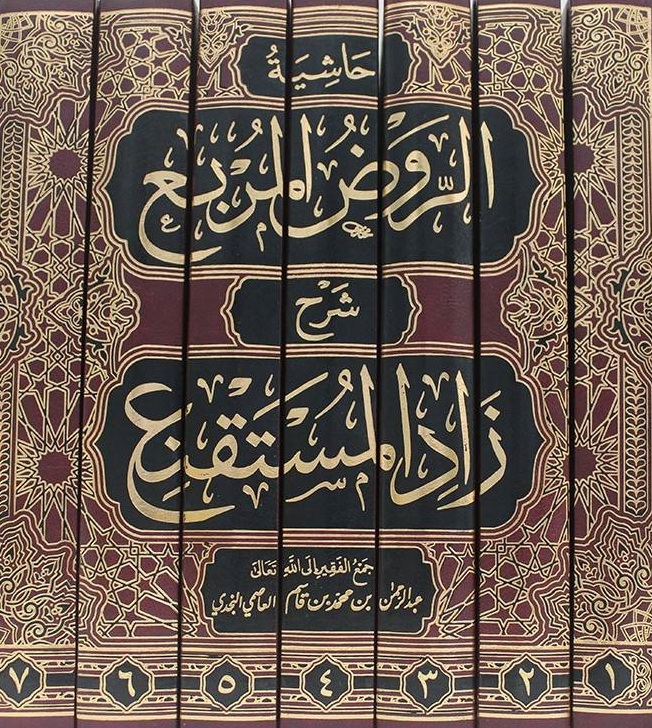 حَاشِيَةُ
الرَّوْضُ المُرْبِعِ
شَرْح
زَادِ المُسْتَقْنِعِ
جَمْعُ الفَقِيرِ إِلَى اللَّهِ تَعَالَى
عبد الرحمن بن محمد بن قاسم العاصمي النجدي
٧ ٦ ٥ ٤ ٣ ٢ ١